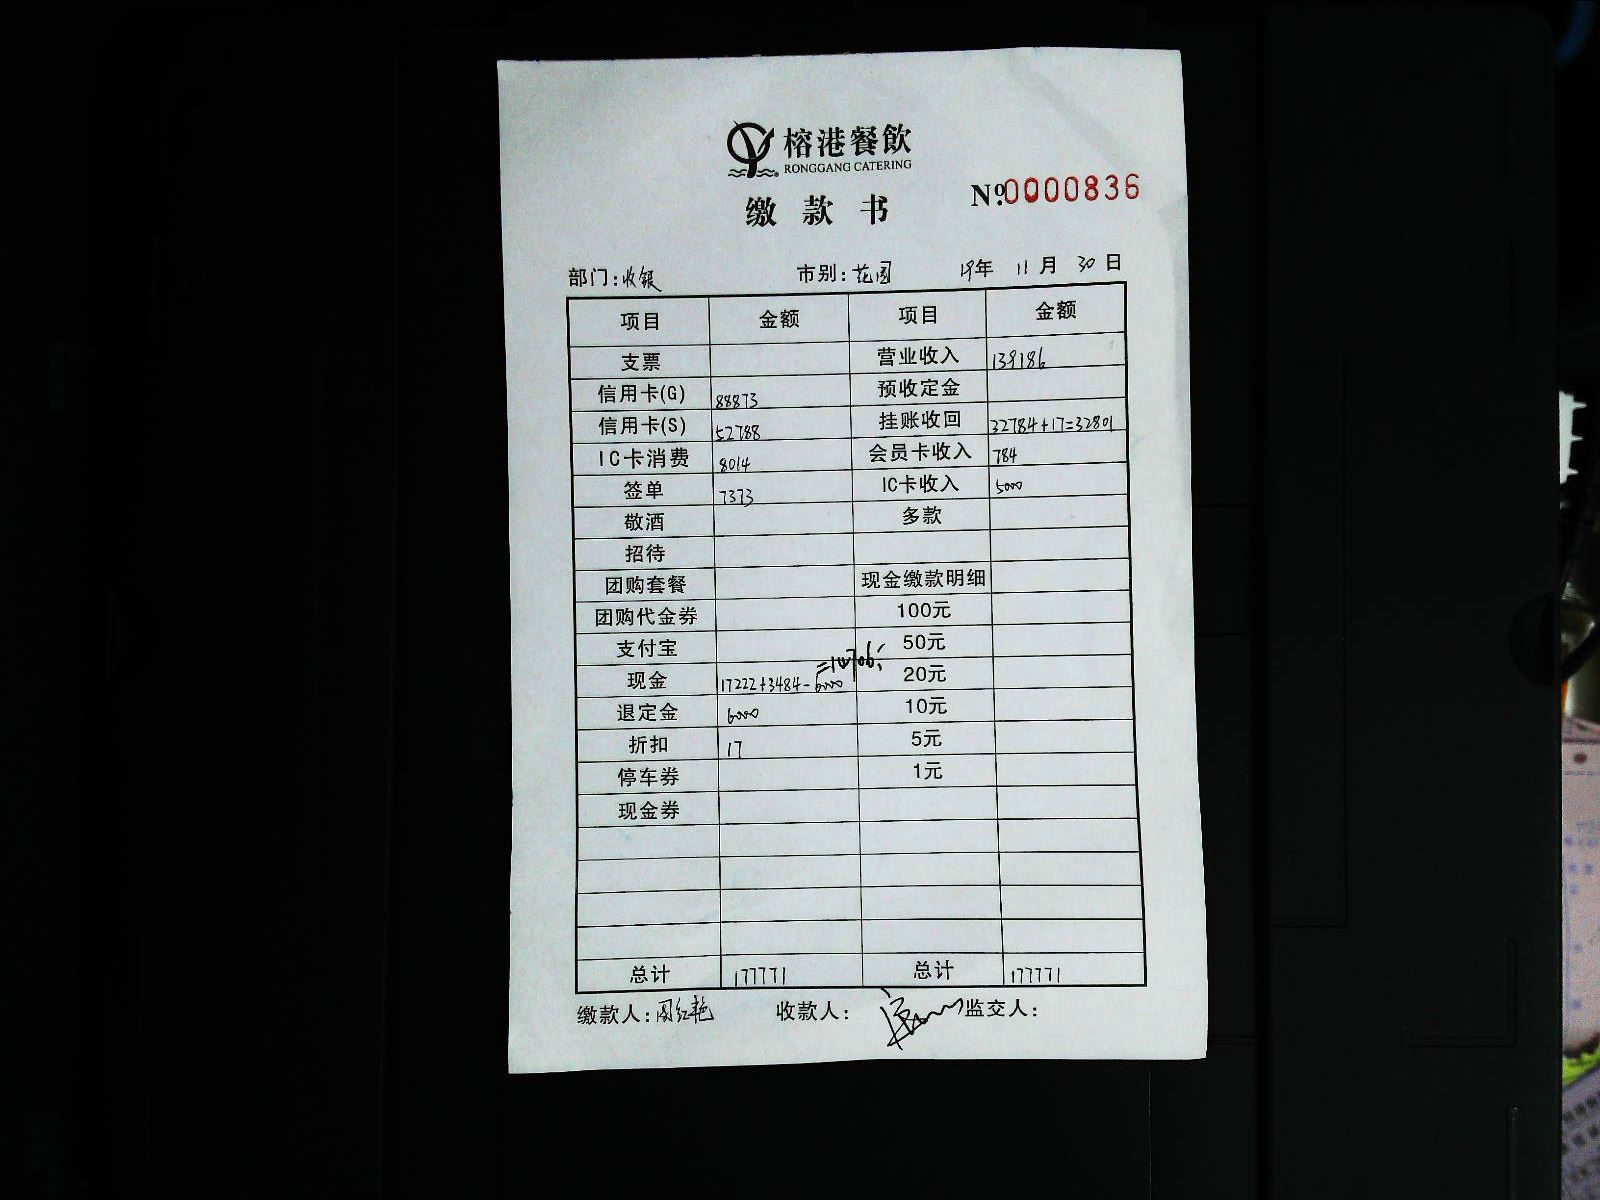 榕港餐飲
RONGGANG CATERING
缴款书
Nº.0000836
部门:收银 市别:花园 19年 11月 30日
项目 金额 项目 金额
支票 营业收入 139186
信用卡(G) 88873 预收定金
信用卡(S) 52788 挂账收回 32784+17=32801
IC卡消费 8014 会员卡收入 784
签单 7373 IC卡收入 5000
敬酒 多款
招待
团购套餐 现金缴款明细
团购代金券 100元
支付宝 50元
现金 17222+3484-6000=14706 20元
退定金 6000 10元
折扣 17 5元
停车券 1元
现金券
总计 177771 总计 177771
缴款人: 红艳 收款人: 监交人: